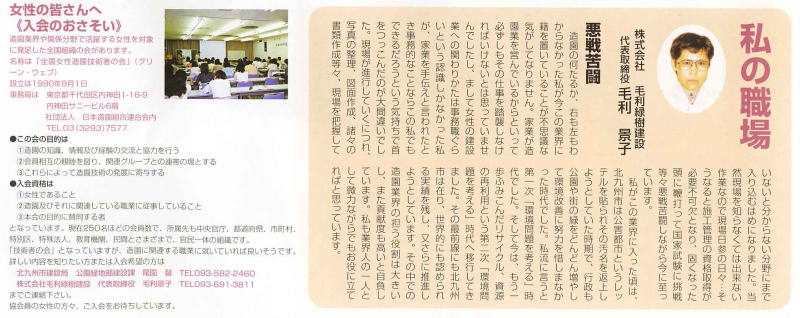 女性の皆さんへ
《入会のおさそい》
造園業界や関係分野で活躍する女性を対象
に発足した全国組織の会があります。
名称は「全国女性造園技術者の会」(グリ
ーン・ウェブ)
設立は1990年9月1日
事務局は 東京都千代田区内神田1-16-9
内神田サニービル6階
社団法人 日本造園組合連合会内
TEL.03(3293)7577
●この会の目的は
①造園の知識、情報及び経験の交流と協力を行う
②会員相互の親睦を図り、関連グループとの連帯の場とする
③これらによって造園技術の発展に寄与する
●入会資格は
①女性であること
②造園及びそれに関連している職業に従事していること
③本会の目的に賛同する者
となっています。現在250名ほどの会員数で、所属先も中央官庁、都道府県、市町村、
特別区、特殊法人、教育機関、民間とさまざまで、官民一体の組織です。
「技術者の会」となっていますが、造園に関連する職業に就いていれば良いそうです。
詳しい内容を知りたい方または入会希望の方は
北九州市建設局 公園緑地部建設課 尾園 馨 TEL093-582-2460
株式会社毛利緑樹建設 代表取締役 毛利景子 TEL093-691-3811
までご連絡下さい。
協会員の女性の方々、ご入会をお待ちしています。
私の職場
株式会社 毛利緑樹建設
代表取締役 毛利 景子
悪戦苦闘
造園の何たるか、右も左もわ
からなかった私が今この業界に
籍を置いていることが不思議な
気がしてなりません。家業が造
園業を営んでいるからといって
必ずしもその仕事を踏襲しなけ
ればいけないとは思っていませ
んでしたし、まして女性の建設
業への関わりかたは事務職ぐら
いという認識しかなかった私
が、家業を手伝えと言われたと
き事務的なことならこの私でも
できるだろうという気持ちで首
をつっこんだのが大間違いでし
た。現場が進行していくにつれ、
写真の整理、図面作成、諸々の
書類作成等々、現場を把握して
いないと分からない分野にまで
入り込むはめになりました。当
然現場を知らなくては出来ない
作業なので現場日参の日々…そ
うなると施工管理の資格取得が
必要不可欠となり、固くなった
頭に鞭打って国家試験に挑戦
等々悪戦苦闘しながら今に至っ
ています。
私がこの業界に入った頃は、
北九州市は公害都市というレッ
テルを貼られその汚名を返上し
ようとしていた時期で、行政も
公園や街の緑をどんどん増やし
て環境改善に努力を惜しまなか
った時代でした。私流に言うと
第一次「環境問題を考える」時
代でした。そして今は、もう一
歩ふみこんだリサイクル、資源
の再利用という第二次「環境問
題を考える」時代へ移行してき
ました。その最前線にも北九州
市は在り、世界的にも認められ
る実績を残し、又さらに推進し
ようとしています。その中での
造園業界の担う役割は大きい
し、また貢献度も高いと自負し
ています。私も業界人の一人と
して微力ながらでもお役に立て
ればと思っています。